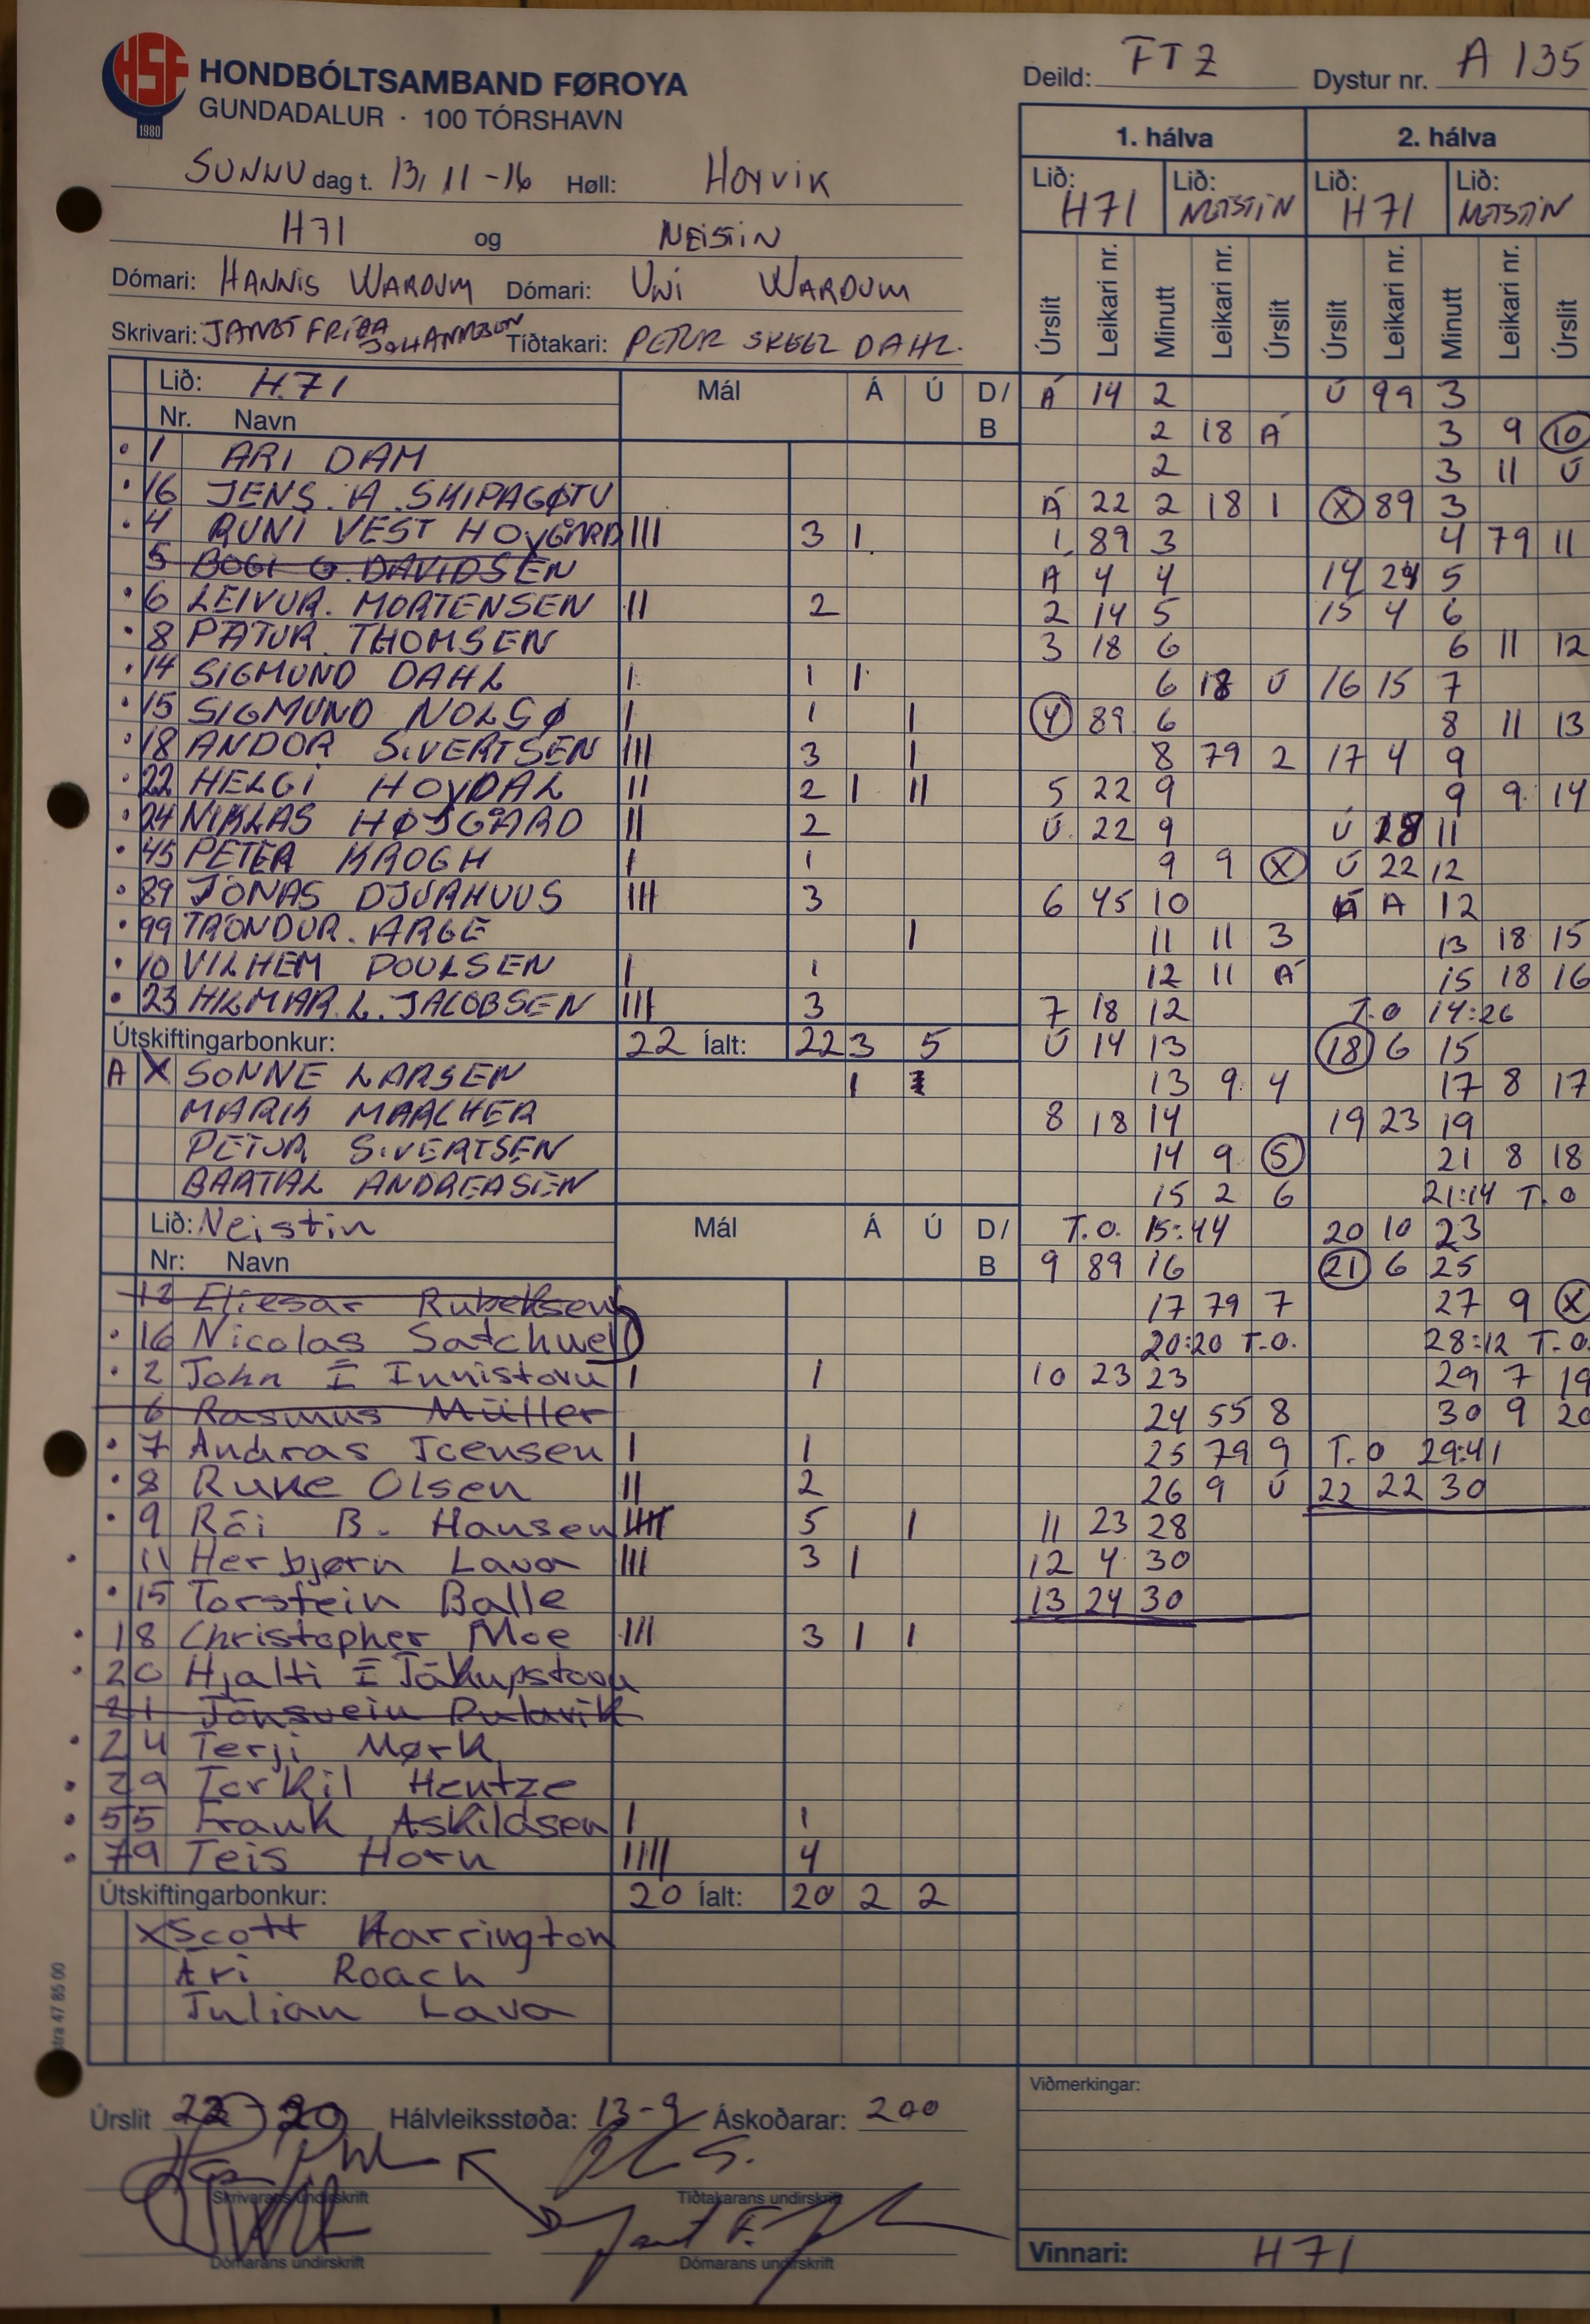 HSF
1980
HONDBÓLTSAMBAND FØROYA
GUNDADALUR · 100 TÓRSHAVN
Deild: FTZ Dystur nr. A 135
SUNNU dag t. 13/11-16 Høll: HOYVIK
H71 og NEISTIN
Dómari: HANNIS WARDUM Dómari: UNI WARDUM
Skrivari: Tíðtakari: PETUR SKEEL DAHL.
Lið: H71 Mál Á Ú D/B
Nr. Navn
1 ARI DAM
16 JENS. A. SKIPAGØTU
4 RUNI VEST HOYGÅRD III 3 1
5 BOGI O. DAVIDSEN
6 LEIVUR. MORTENSEN II 2
8 PÆTUR. THOMSEN
14 SIGMUND DAHL I 1 1
15 SIGMUND NOLSØ I 1 1
18 ANDOR SIVERTSEN III 3 1
22 HELGI HOYDAL II 2 1 II
24 NIKLAS HØJGÅRD II 2
45 PETER KROGH I 1
89 JÓNAS DJURHUUS III 3
99 TRÓNDUR. ARGE 1
10 VILHEM POULSEN I 1
23 HILMAR. L. JACOBSEN III 3
Útskiftingarbonkur: 22 Íalt: 22 3 5
A X SONNE LARSEN 1
PETUR SIVERTSEN
BARTAL ANDREASEN
Lið: Neistin Mál Á Ú D/B
Nr: Navn
12 Eliesar Rubeksen
16 Nicolas Satchwell
2 John Í Innistovu I 1
6 Rasmus Müller
7 Andras Joensen I 1
8 Rune Olsen II 2
9 Rói B. Hansen IIIII 5 1
11 Herbjørn Lava III 3 1
15 Torstein Balle
18 Christopher Moe III 3 1 1
20 Hjalti Í Jákupstovu
24 Terji Mørk
29 Torkil Hentze
55 Frank Askildsen I 1
79 Teis Horn IIII 4
Útskiftingarbonkur: 20 Íalt: 20 2 2
X Scott Harrington
Ári Roach
Julian Lava
Úrslit 22-20 Hálvleiksstøða: 13-9 Áskoðarar: 200
Skrivarans undirskrift Tíðtakarans undirskrift
Dómarans undirskrift Dómarans undirskrift
1. hálva 2. hálva
Lið: H71 Lið: NEISTIN Lið: H71 Lið: NEISTIN
Úrslit Leikari nr. Minutt Leikari nr. Úrslit Úrslit Leikari nr. Minutt Leikari nr. Úrslit
Á 14 2 Ú 99 3
2 18 Á 3 9 10
2 3 11 Ú
Á 22 2 18 1 X 89 3
1 89 3 4 79 11
Á 4 4 14 24 5
2 14 5 15 4 6
3 18 6 6 11 12
6 18 Ú 16 15 7
4 89 6 8 11 13
8 79 2 17 4 9
5 22 9 9 9 14
Ú 22 9 Ú 18 11
9 9 X Ú 22 12
6 45 10 Á A 12
11 11 3 13 18 15
12 11 Á 15 18 16
7 18 12 T.O 14:26
Ú 14 13 18 6 15
13 9 4 17 8 17
8 18 14 19 23 19
14 9 5 21 8 18
15 2 6 21:14 T.O
T.O. 15:44 20 10 23
9 89 16 21 6 25
17 79 7 27 9 X
20:20 T.O. 28:12 T.O.
10 23 23 29 7 19
24 55 8 30 9 20
25 79 9 T.O 29:41
26 9 Ú 22 22 30
11 23 28
12 4 30
13 24 30
Viðmerkingar:
Vinnari: H71